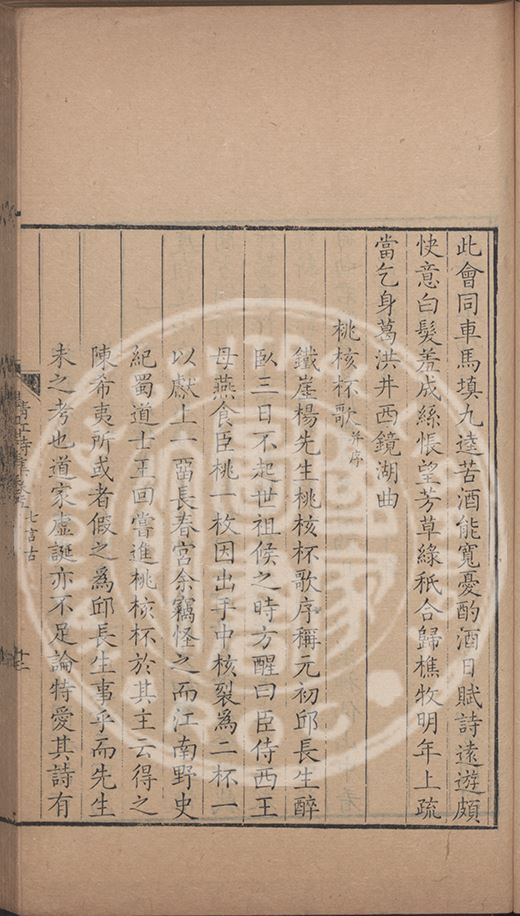 此會同車馬填九逵苦酒能寬憂酌酒日賦詩遠遊頗
快意白髮羞成絲悵望芳草綠秖合歸樵牧明年上疏
當乞身葛洪井西鏡湖曲
桃核杯歌并序
鐵崖楊先生桃核杯歌序稱元初邱長生醉
臥三日不起世祖候之時方醒曰臣侍西王
母燕食臣桃一枚因出乎中核裂為二杯一
以獻上一留長春宮余竊怪之而江南野史
紀蜀道士王回嘗進桃核杯於其王云得之
陳希夷所或者假之為邱長生事乎而先生
未之考也道家虛誕亦不足論特愛其詩有
清江詩集卷五 七言古 十三